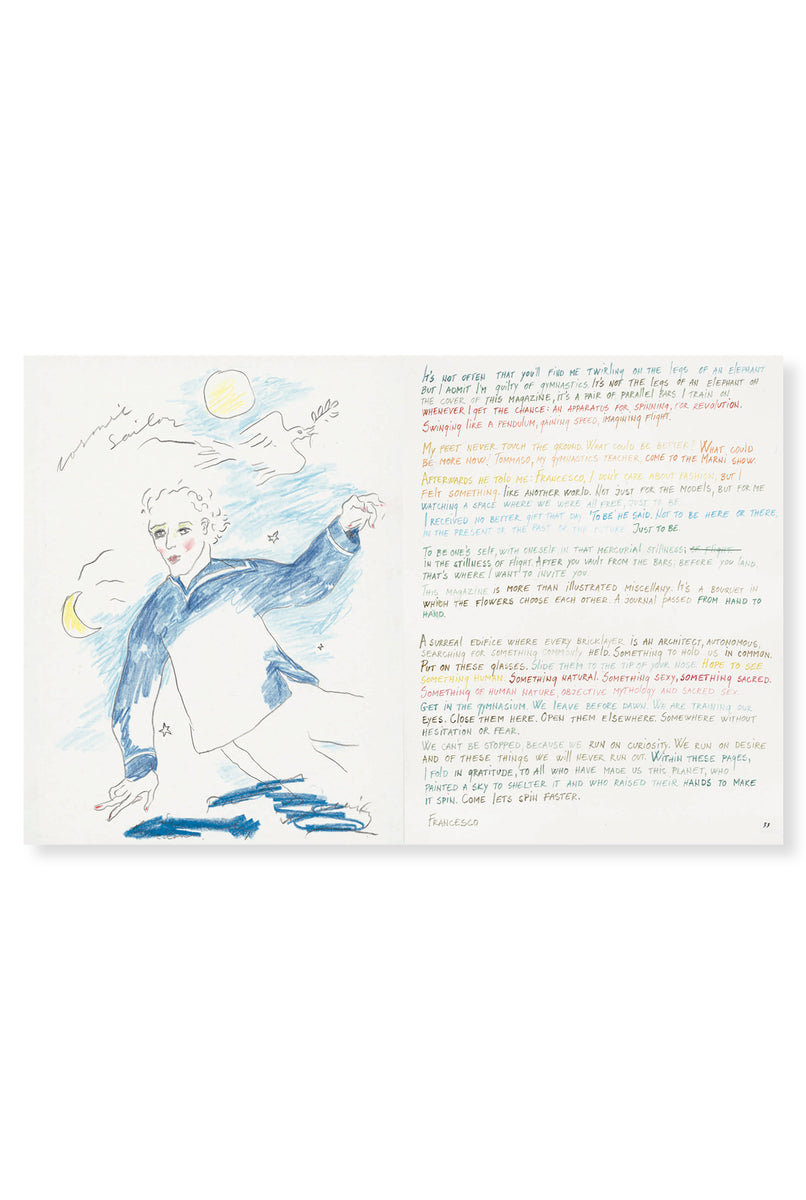 cosmic
sailor
IT'S NOT OFTEN THAT YOU'LL FIND ME TWIRLING ON THE LEGS OF AN ELEPHANT
BUT I ADMIT I'M GUILTY OF GYMNASTICS. IT'S NOT THE LEGS OF AN ELEPHANT ON
THE COVER OF THIS MAGAZINE, IT'S A PAIR OF PARALLEL BARS I TRAIN ON
WHENEVER I GET THE CHANCE: AN APPARATUS FOR SPINNING, FOR REVOLUTION.
SWINGING LIKE A PENDULUM, GAINING SPEED, IMAGINING FLIGHT.
MY FEET NEVER TOUCH THE GROUND. WHAT COULD BE BETTER? WHAT COULD
BE MORE NOW? TOMMASO, MY GYMNASTICS TEACHER, COME TO THE MARNI SHOW.
AFTERWARDS HE TOLD ME: FRANCESCO, I DON'T CARE ABOUT FASHION, BUT I
FELT SOMETHING. LIKE ANOTHER WORLD. NOT JUST FOR THE MODELS, BUT FOR ME
WATCHING A SPACE WHERE WE WERE ALL FREE, JUST TO BE.
I RECEIVED NO BETTER GIFT THAT DAY. 'TO BE HE SAID. NOT TO BE HERE OR THERE,
IN THE PRESENT OR THE PAST OR THE FUTURE. JUST TO BE.
TO BE ONE'S SELF, WITH ONESELF IN THAT MERCURIAL STILLNESS: OF FLIGHT
IN THE STILLNESS OF FLIGHT. AFTER YOU VAULT FROM THE BARS, BEFORE YOU LAND,
THAT'S WHERE I WANT TO INVITE YOU
THIS MAGAZINE IS MORE THAN ILLUSTRATED MISCELLANY. IT'S A BOUQUET IN
WHICH THE FLOWERS CHOOSE EACH OTHER. A JOURNAL PASSED FROM HAND TO
HAND.
A SURREAL EDIFICE WHERE EVERY BRICKLAYER IS AN ARCHITECT, AUTONOMOUS,
SEARCHING FOR SOMETHING COMMONLY HELD. SOMETHING TO HOLD US IN COMMON.
PUT ON THESE GLASSES. SLIDE THEM TO THE TIP OF YOUR NOSE. HOPE TO SEE
SOMETHING HUMAN. SOMETHING NATURAL. SOMETHING SEXY, SOMETHING SACRED.
SOMETHING OF HUMAN NATURE, OBJECTIVE MYTHOLOGY AND SACRED SEX.
GET IN THE GYMNASIUM. WE LEAVE BEFORE DAWN. WE ARE TRAINING OUR
EYES. CLOSE THEM HERE. OPEN THEM ELSEWHERE. SOMEWHERE WITHOUT
HESITATION OR FEAR.
WE CAN'T BE STOPPED, BECAUSE WE RUN ON CURIOSITY. WE RUN ON DESIRE
AND OF THESE THINGS WE WILL NEVER RUN OUT. WITHIN THESE PAGES,
I FOLD IN GRATITUDE, TO ALL WHO HAVE MADE US THIS PLANET, WHO
PAINTED A SKY TO SHELTER IT AND WHO RAISED THEIR HANDS TO MAKE
IT SPIN. COME LETS SPIN FASTER.
FRANCESCO